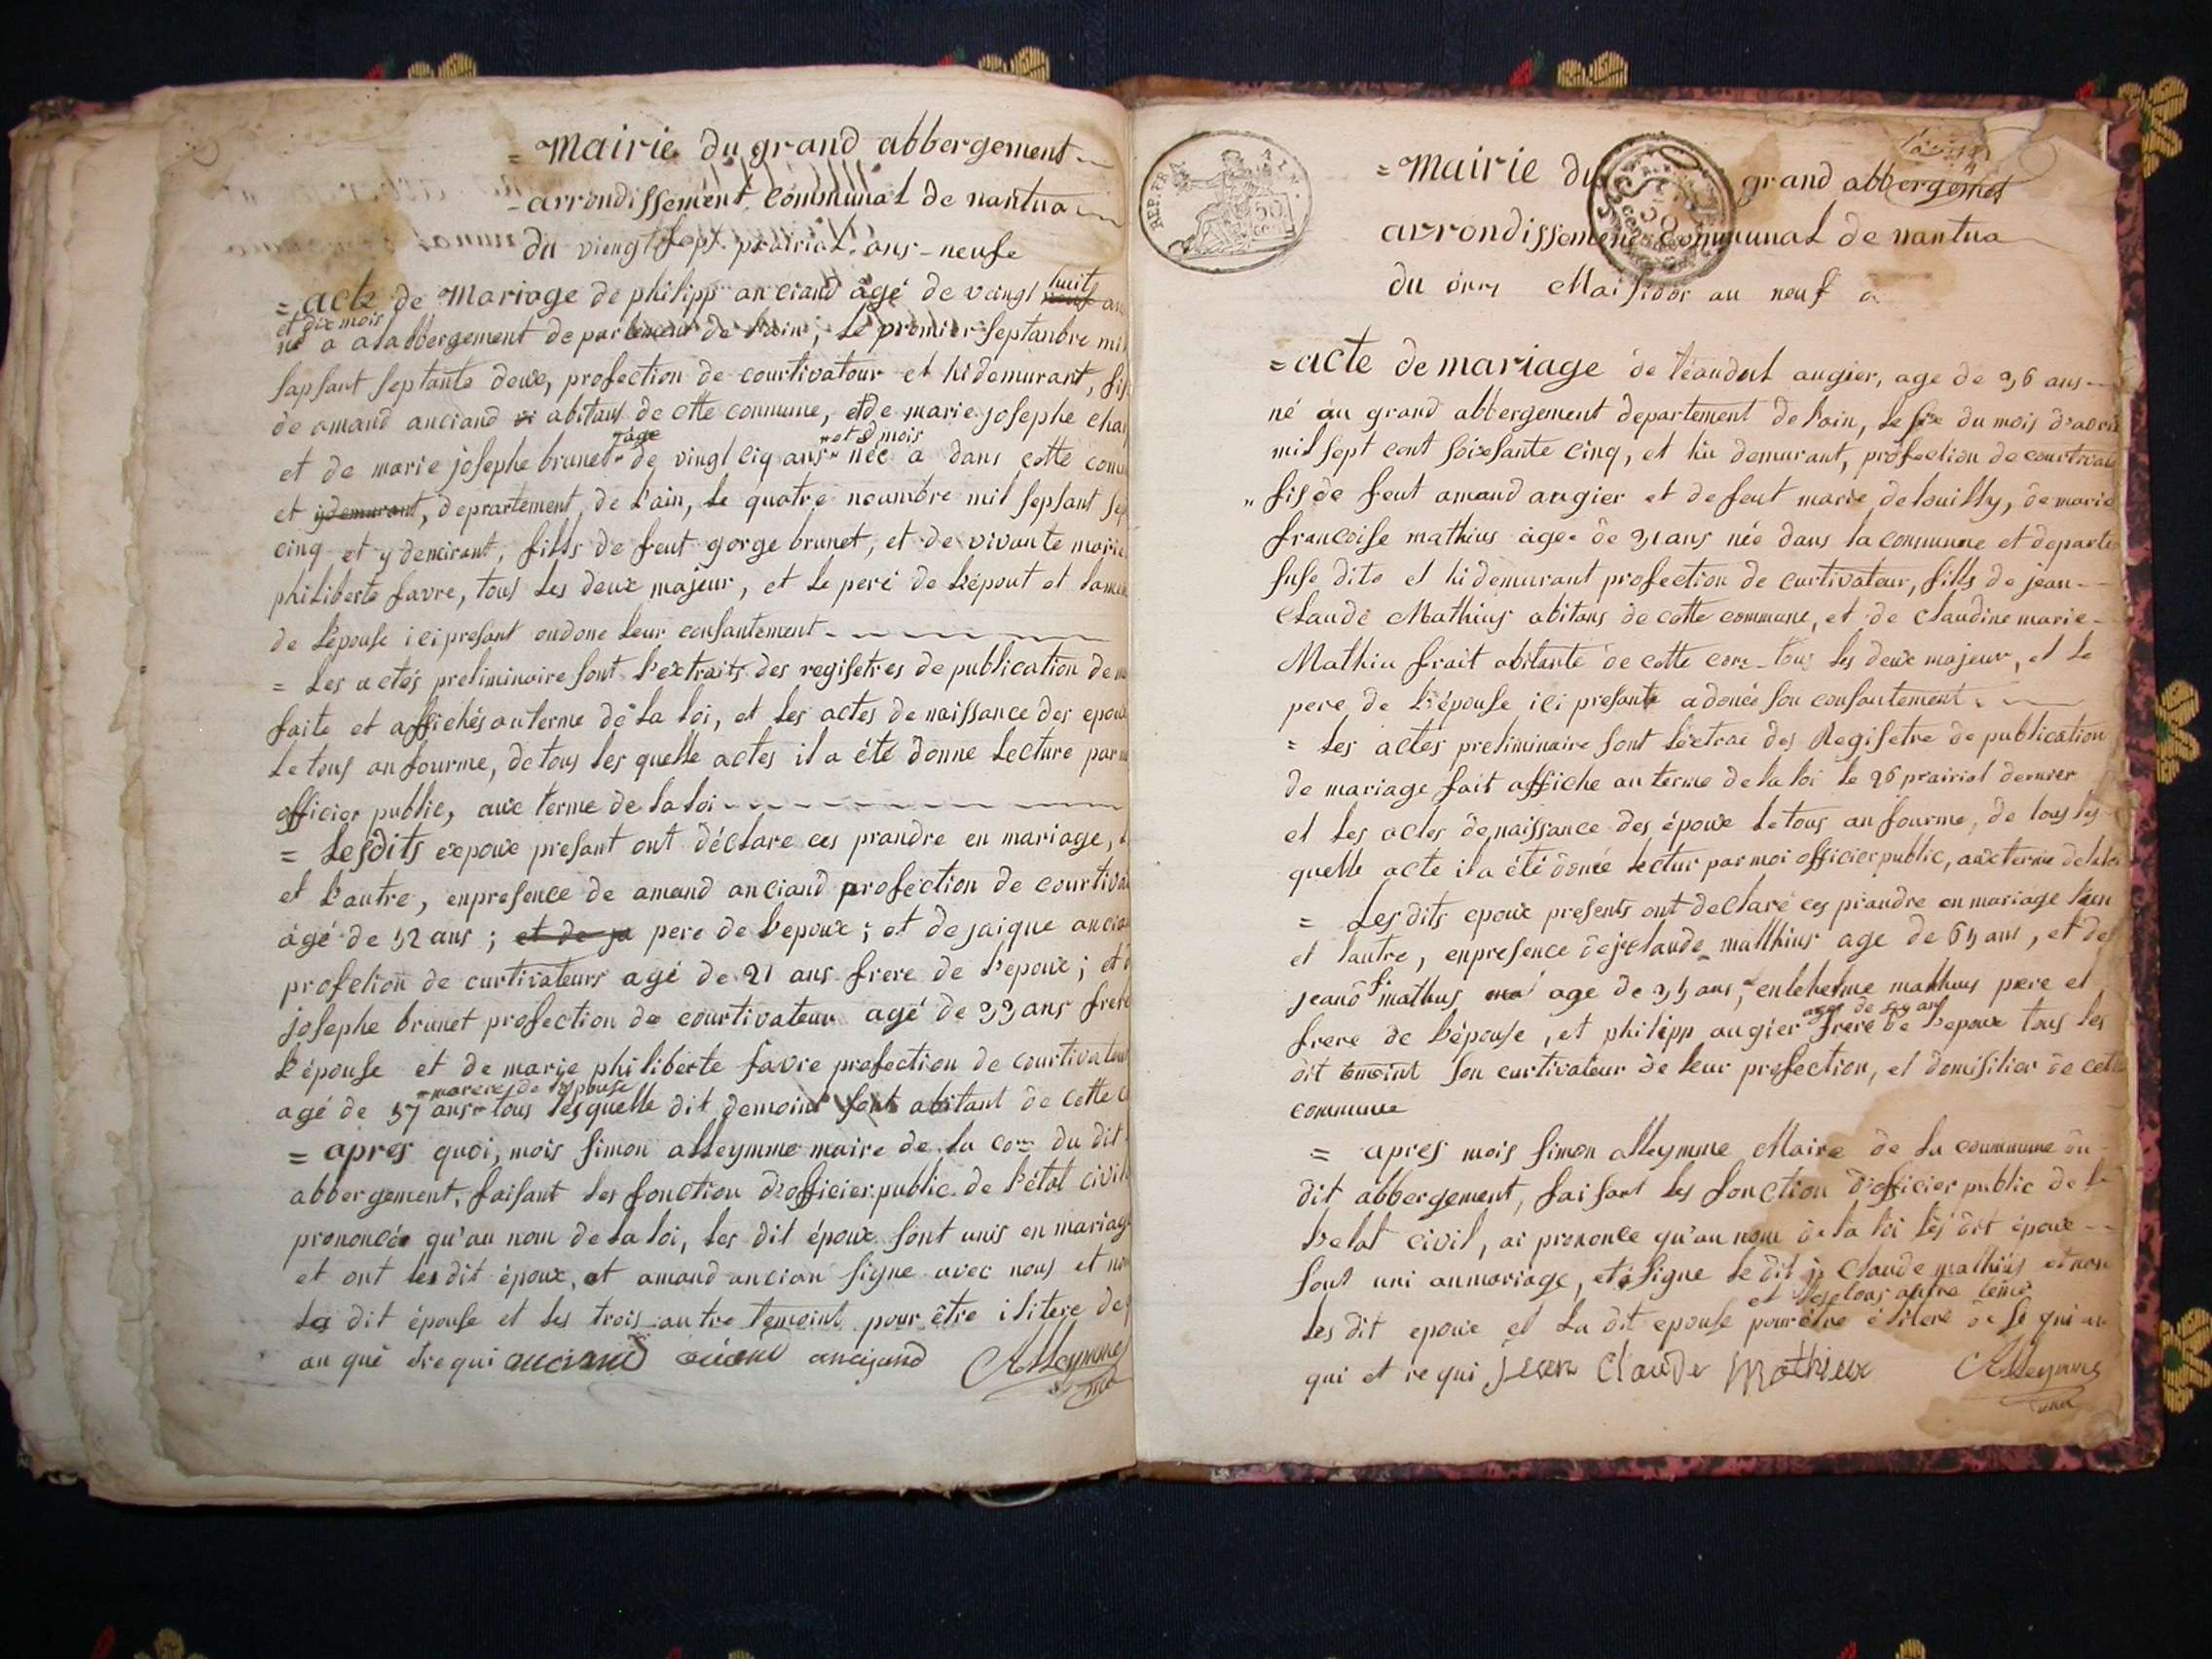 = Mairie du grand abbergement
- arrondissement communal de nantua
du viengt sept prairial ans-neufe
= acte de Mariage de philipp anciand âgé de veingt huit
et dix mois
né a alabbergement de partement de l'ain, le premier septanbre
sapsant septante deux, profection de courtivatour et hi demurant,
de amand anciand abitans de cette commune, et de marie josephe
" age " et 8 mois
et de marie josephe brunet " de vingt ciq ans " née a dans cette
et ydemurant, deprartement, de l'ain, le quatre noumbre mil sepsant
cinq et y demeurant, fills de feut gorge brunet, et de vivante marie
philiberte favre, tous les deux majeur, et le peré de l'épout et la
de l'épouse ici presant on done leur consantement
= Les actés preliminaire sont l'extraits des registres de publication de
faite et affichés au terme de la loi, et les actes de naissance des
le tous an fourme, de tous les quelle actes il a été donne Lecture par
officier public, aux terme de la loi
= Lesdits expoux presant ont déclare ces prandre en mariage,
et l'autre, enpresence de amand anciand profection de
âgé de 52 ans ; et de ja pere de l'epoux ; et de jaique
profetion de curtivateurs agé de 21 ans frere de l'epoux ;
josephe brunet profection de courtivateur agé de 33 ans
l'épouse et de marie philiberte favre profection de
de l'epouse
agé de 57 ans " tous lesquelle dit demoint sont abitant de cette
= apres quoi, mois simon alleymme maire de la com du dit
abbergement, faisant les fonction d'officier public de l'état
prononcée qu'au nom de la loi, les dit époux sont unis en
et ont les dit époux, et amand ancian signe avec nous et
La dit épouse et les trois autre temoint pour être ilitere de
an qué dre qui anciand anciand Alleymme
REP. FRA.
50
= Mairie du grand abbergement
arrondissement communal de nantua
du onze Maisidor an neuf
= acte de mariage de téaudul augier, age de 36 ans
né au grand abbergement departement de l'ain, le six du mois
mil sept cent soixsante cinq, et hi demurant, profection de
" fis de feut amand augier et de feut marie delouilly, de marie
francoise mathius agée de 31 ans née dans la commune et
suse dite et hi demurant profection de curtivateur, fills de jean
Claude Mathius abitans de cette commune, et de claudine marie
Mathiu frait abitante de cette com tous les deux majeur, et le
pere de l'épouse ici presante a donée son consantement
= Les actés preliminaire sont l'extrac des Registre de publication
de mariage fait affiche an terme de la loi le 26 prairiel dernier
et les actes de naissance des époux le tous an fourme, de tous les
quelle acte il a été donée lectur par moi officier public, aux terme de la
= Les dits epoux presents ont declaré ces prandre en mariage l'un
et lautre, enpresence de j claude matthius age de 65 ans, et de
jeanõ fs mathus age de 35 ans, " enlehelme mathus pere et
frere de l'épouse, et philipp augier frere de l'epoux tous les
dit temoint son curtivateur de leur profection, et domisilier de
commune
= apres mois simon alleymme Maire de la coummune du
dit abbergement, faisant les fonction d'officier public de
l'etat civil, ai prononce qu'au nom de la loi les dit époux
sont uni anmariage, et a signe le dit j Claude mathius et non
et les tous autre
les dit epoux et la dit epouse pour être
qui et re qui jean Claude Mathieux Alleymme